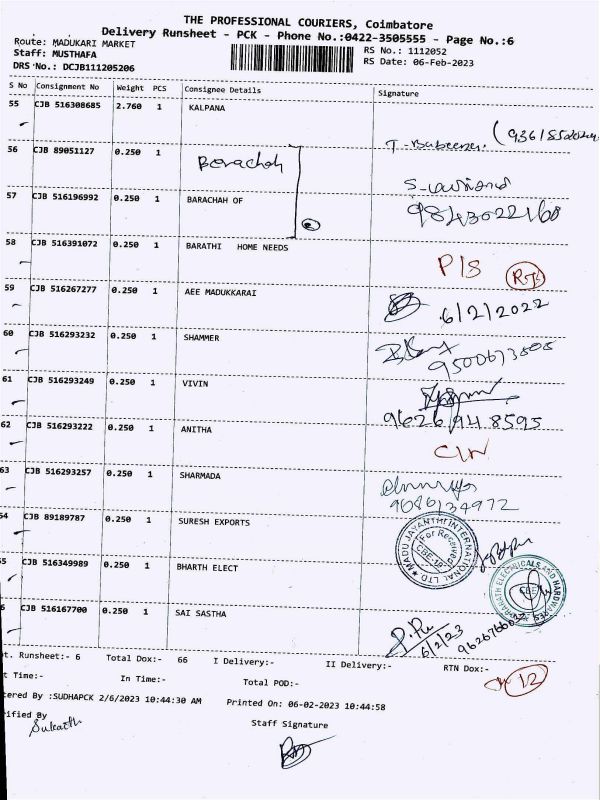 THE PROFESSIONAL COURIERS, Coimbatore
Delivery Runsheet - PCK - Phone No.:0422-3505555 - Page No.:6
Route: MADUKARI MARKET
RS No.: 1112052
Staff: MUSTHAFA
RS Date: 06-Feb-2023
DRS No.: DCJB111205206
S No Consignment No Weight PCS Consignee Details Signature
55 CJB 516308685 2.760 1 KALPANA
56 CJB 89051127 0.250 1 Barachah
57 CJB 516196992 0.250 1 BARACHAH OF
9843022160
58 CJB 516391072 0.250 1 BARATHI HOME NEEDS
P/S
59 CJB 516267277 0.250 1 AEE MADUKKARAI
6/2/2022
60 CJB 516293232 0.250 1 SHAMMER
61 CJB 516293249 0.250 1 VIVIN
9626948595
62 CJB 516293222 0.250 1 ANITHA
63 CJB 516293257 0.250 1 SHARMADA
9080134972
54 CJB 89189787 0.250 1 SURESH EXPORTS
MADU JAYANTHI INTERNATIONAL LTD
For Received
55 CJB 516349989 0.250 1 BHARTH ELECT
6 CJB 516167700 0.250 1 SAI SASTHA
6/2/23
t. Runsheet:- 6 Total Dox:- 66 I Delivery:- II Delivery:- RTN Dox:-
t Time:- In Time:- Total POD:-
12
tered By :SUDHAPCK 2/6/2023 10:44:30 AM Printed On: 06-02-2023 10:44:58
rified By Staff Signature